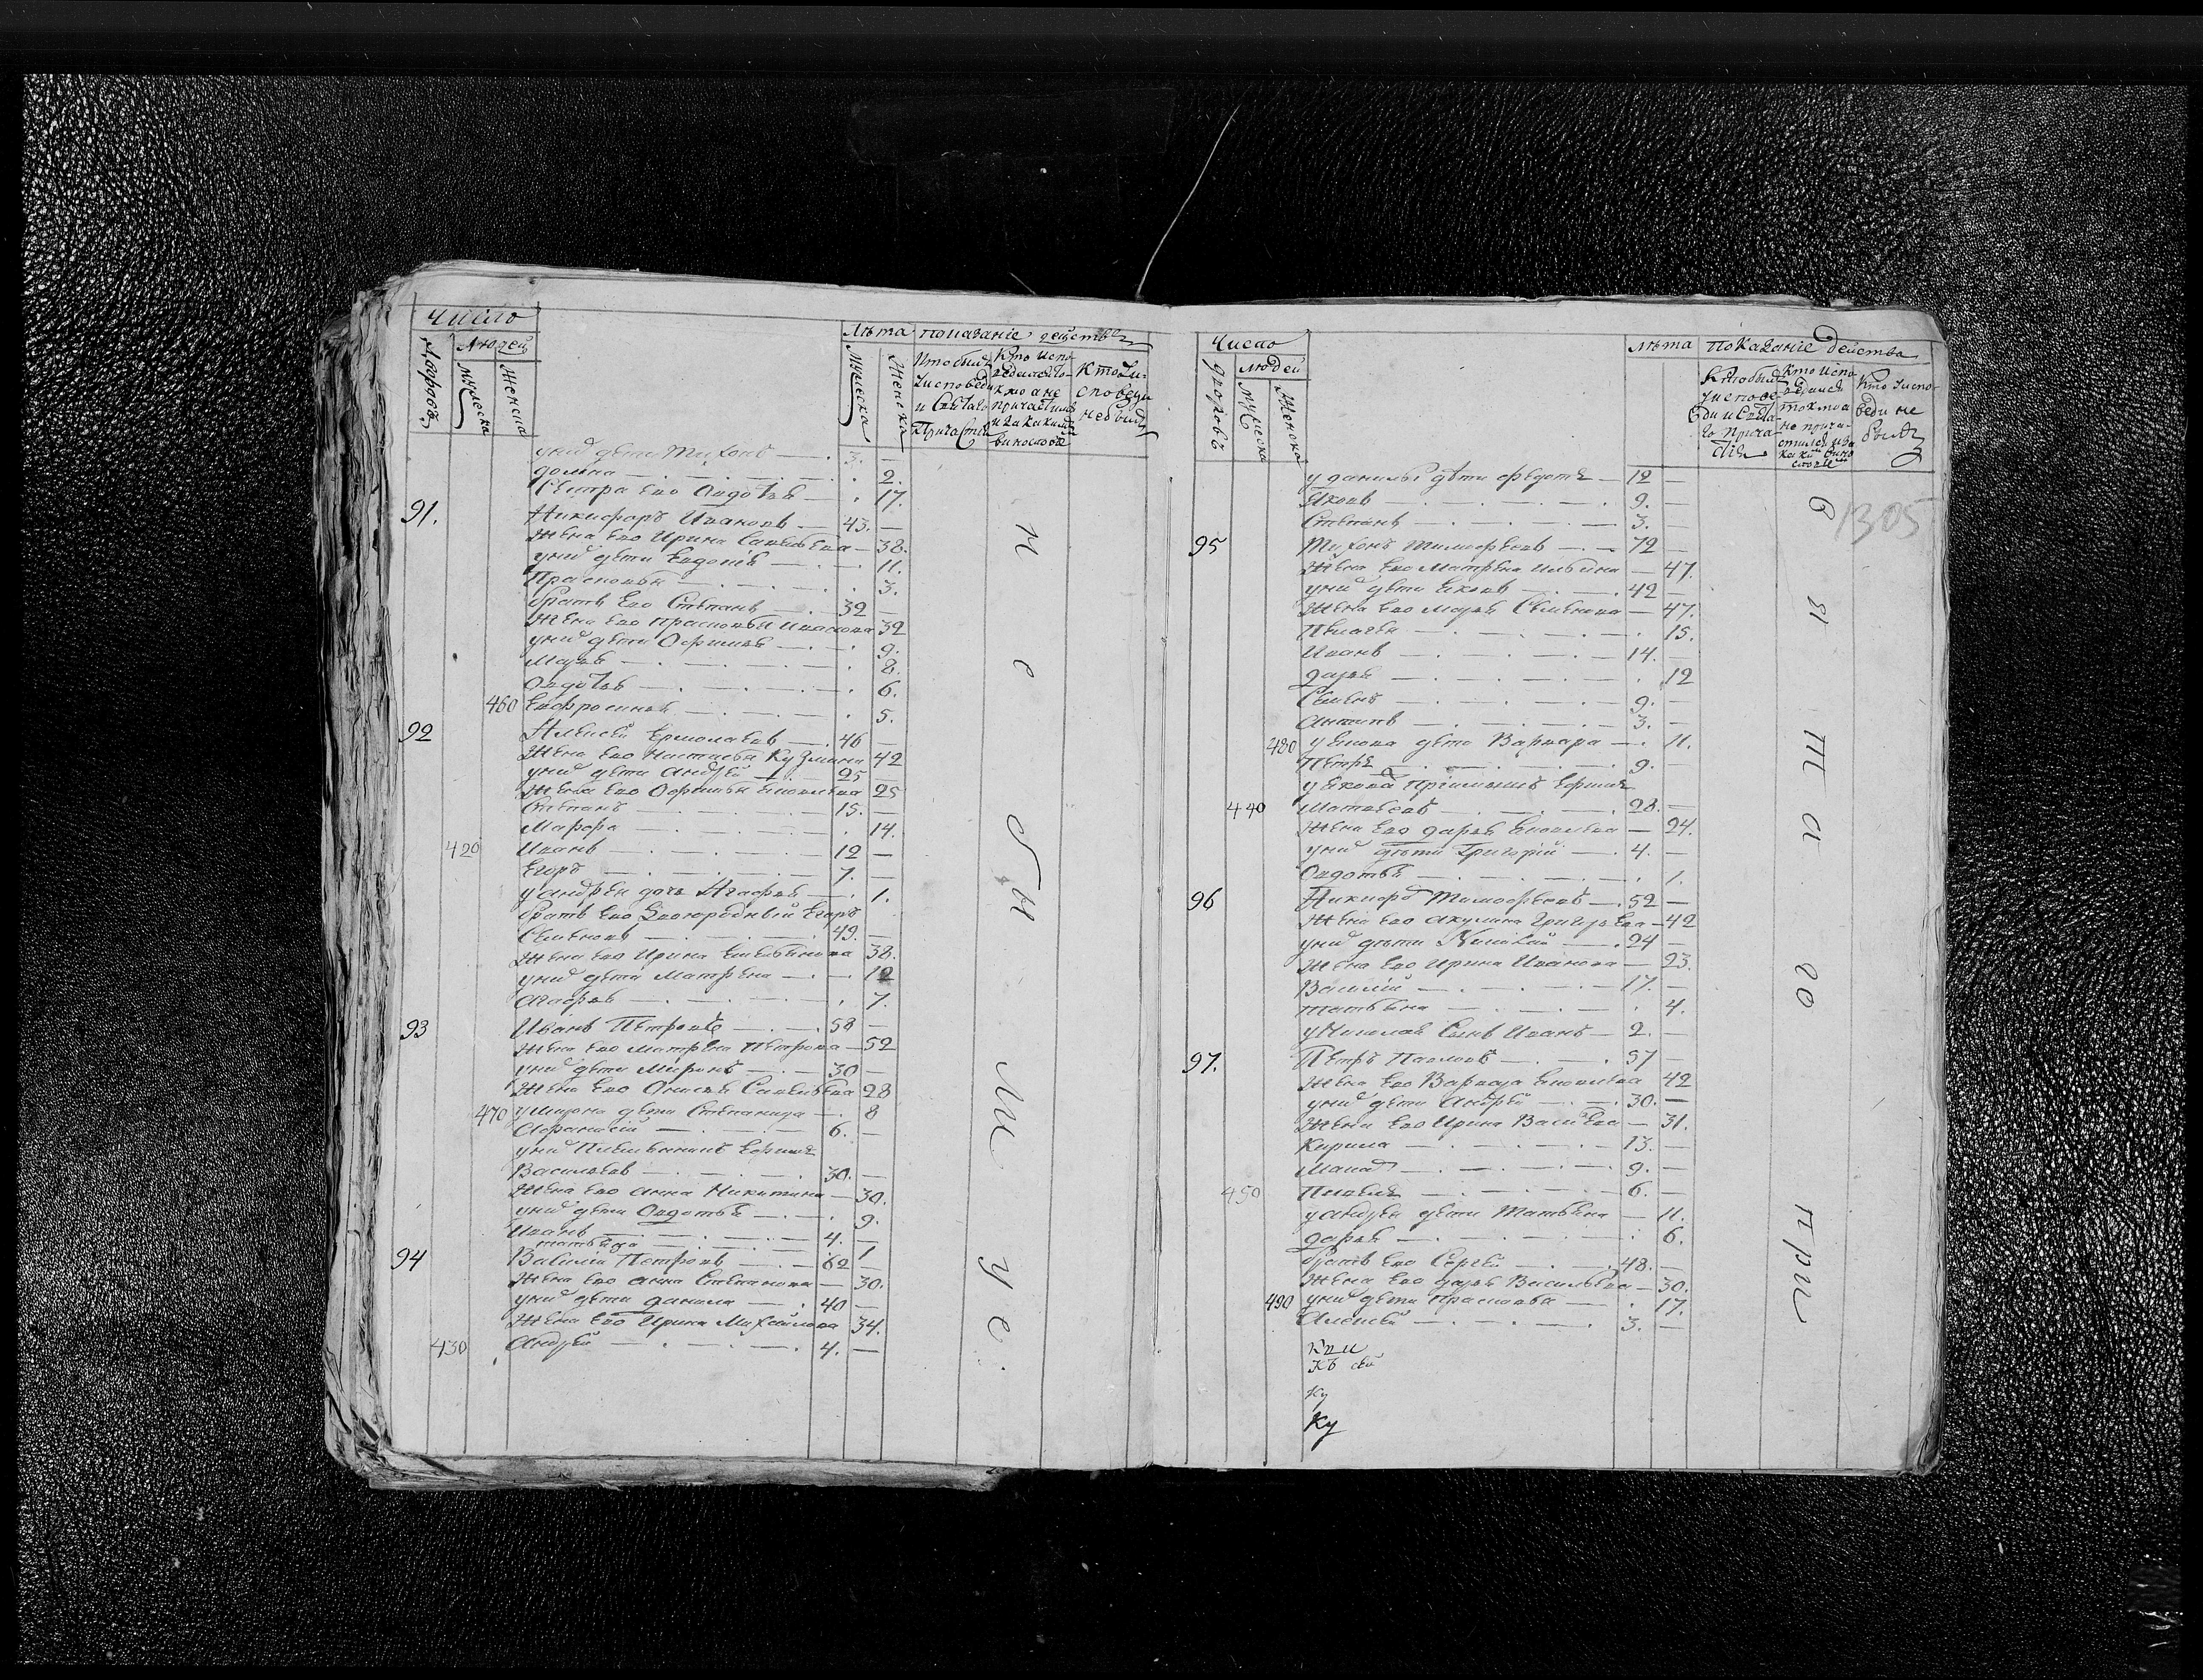 Число
Людей
Дворовъ
Мужеска
Женска
Лѣта
Показание действа
Мужеска
Женска
Кто был
у исповеди
и свѣтаго
Причастия
Кто испо
ведался то
кмо а не
причастился
и за какими
виностьми
Кто у и
споведи
не был
у них дети Тихонъ 3. —
Домна 2.
Сестра ево Овдотья 17.
91. Никифоръ Ивановъ 43. —
Жена ево Ирина Савельева 38.
у них дети Евдокия 11.
Прасковья 3.
братъ ево Степанъ 32 —
Жена ево Прасковья Иванова 32
у них дети Офимья 9.
Марья 8.
Овдотья 6.
460 Евфросинья 5.
92 Алексей Ермолаевъ 46 —
Жена ево Настасья Кузмина 42
у них дети Андрей 25 —
Жена ево Офимья Яковлева 25
Степанъ 15. —
Марфа 14.
420 Иванъ 12 —
Егоръ 7. —
у Андрея дочь Агафья 1.
братъ ево двоюродный Егоръ
Семеновъ 49. —
Жена ево Ирина Емельянова 38.
у них дети Матрена 12
Агафья 7.
93 Иванъ Петровъ 58 —
Жена ево Матрена Петрова 52
у них дети Миронъ 30 —
Жена ево Онисья Савельева 28
470 у Мирона дети Степанида 8
Афанасий 6. —
у них племянникъ Ефимъ
Васильевъ 30. —
Жена ево Анна Никитина 30.
у них дети Овдотья 9.
Иванъ 4. —
Татьяна 1
94 Василий Петровъ 62 —
Жена ево Анна Степанова 30.
у них дети Данила 40 —
Жена ево Ирина Михайлова 34.
430 Андрей 4. —
и
с
бы
ли
у с.
Число
людей
дворовъ
Мужеска
Женска
лѣта
Показание действа
Кто был
у испове
ди и свята
го прича
стия
Кто испо
ведался
токмо а
не прича
стился и за
какимъ вино
Кто у испо
веди не
былъ
1305
у Данилы дѣти Федотъ 12 —
Яковъ 9. —
Степанъ 3. —
95 Тихонъ Тимофеевъ 72 —
Жена ево Матрена Ильина 47.
у них дети Яковъ 42 —
Жена ево Марья Семенова 47.
Пелагея 15.
Иванъ 14. —
Дарья 12
Семенъ 9. —
Антипъ 3. —
480 у Якова дети Варвара 11.
Петръ 9. —
у Якова приимышъ Ефимъ
440 Матвеевъ 28. —
Жена ево Дарья Яковлева 24.
у них дѣти Григорий 4. —
Овдотья 1.
96 Никифоръ Тимофеевъ 52 —
Жена ево Акулина Григорьева 42
у них дѣти Николай 24 —
Жена ево Ирина Иванова 23.
Василий 17. —
Татьяна 4.
у Николая сынъ Иванъ 2. —
97. Петръ Павловъ 57 —
Жена ево Варвара Яковлева 42
у них дети Андрей 30. —
Жена ево Ирина Васильева 31.
Кирила 13. —
9. —
450 Павелъ 6. —
у Андрея дети Татьяна 11.
Дарья 6.
братъ ево Сергей 48. —
Жена ево Дарья Васильева 30.
490 у них дети Прасковья 17.
Алексей 3. —
Ку
Ку
в
я
т
а
го
при